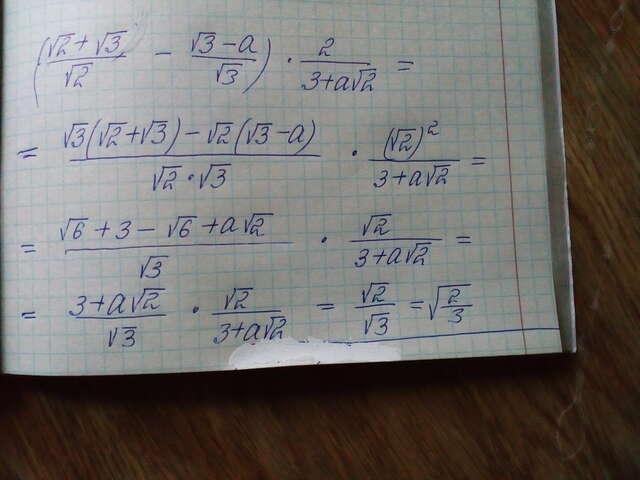 ((√2 + √3)/√2 − (√3 − a)/√3) · 2/(3+a√2) =
= (√3(√2+√3) − √2(√3−a))/(√2 · √3) · (√2)²/(3+a√2) =
= (√6 + 3 − √6 + a√2)/√3 · √2/(3+a√2) =
= (3+a√2)/√3 · √2/(3+a√2) = √2/√3 = √(2/3)